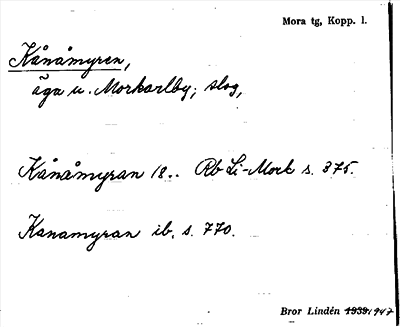 Mora tg, Kopp. l.
Kånåmyren,
äga u. Morkarlby; slog,
Kånåmyran 18.. Rb Li-Mork s. 375.
Kanamyran ib. s. 770.
Bror Lindén 1939. 1947